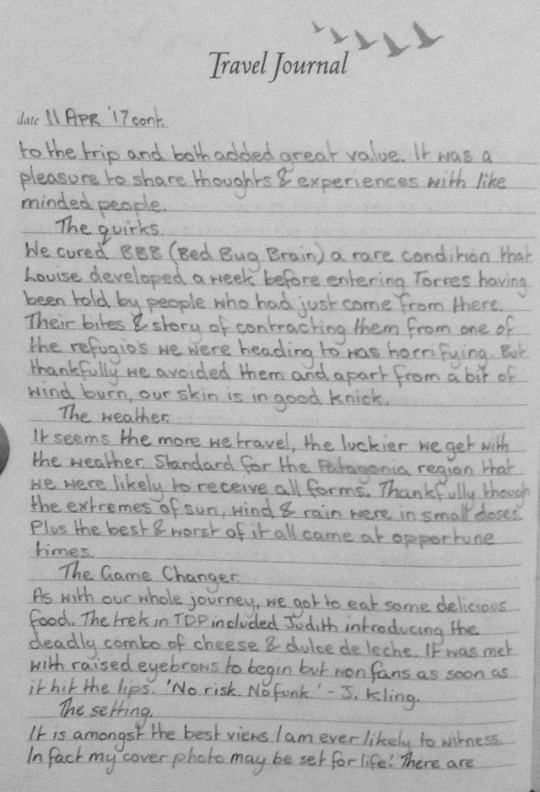 Travel Journal
date 11 APR '17 cont.
to the trip and both added great value. It was a
pleasure to share thoughts & experiences with like
minded people.
The quirks.
We cured BBB (Bed Bug Brain) a rare condition that
Louise developed a week before entering Torres having
been told by people who had just come from there.
Their bites & story of contracting them from one of
the refugio's we were heading to was horrifying. But
thankfully we avoided them and apart from a bit of
wind burn, our skin is in good knick.
The weather.
It seems the more we travel, the luckier we get with
the weather. Standard for the Patagonia region that
we were likely to receive all forms. Thankfully though
the extremes of sun, wind & rain were in small doses.
Plus the best & worst of it all came at opportune
times.
The Game Changer
As with our whole journey, we got to eat some delicious
food. The trek in TDP included Judith introducing the
deadly combo of cheese & dulce de leche. It was met
with raised eyebrows to begin but won fans as soon as
it hit the lips. 'No risk. No funk.' - J. Kling.
The setting.
It is amongst the best views I am ever likely to witness.
In fact my cover photo may be set for life! There are